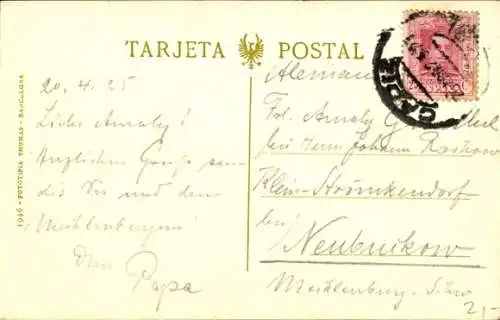 TARJETA POSTAL
1946 - FOTOTIPIA THOMAS - BARCELONA
20.4.25
Liebe Amaly!
Herzlichen Gruss sen-
det Dir und den
Mecklenburgern!
Dein
Papa
Alemania
Frl. Amaly
bei Herrn Johann
Klein-Strömkendorf
bei
Neubukow
Mecklenburg-Schw
CADIZ
2,-